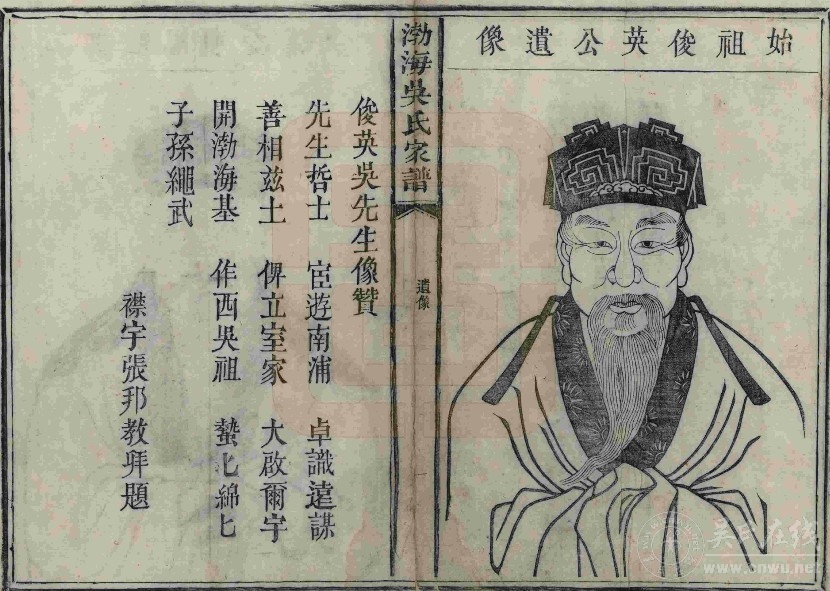 始祖俊英公遺像
渤海吳氏家譜
遺像
一
俊英吳先生像贊
先生哲士 宦遊南浦 卓識遠謀
善相兹土 俾立室家 大啟爾宇
開渤海基 作西吳祖 蟄匕綿匕
子孫繩武
襟宇張邦教拜題
吴氏在线
www.cnwu.net